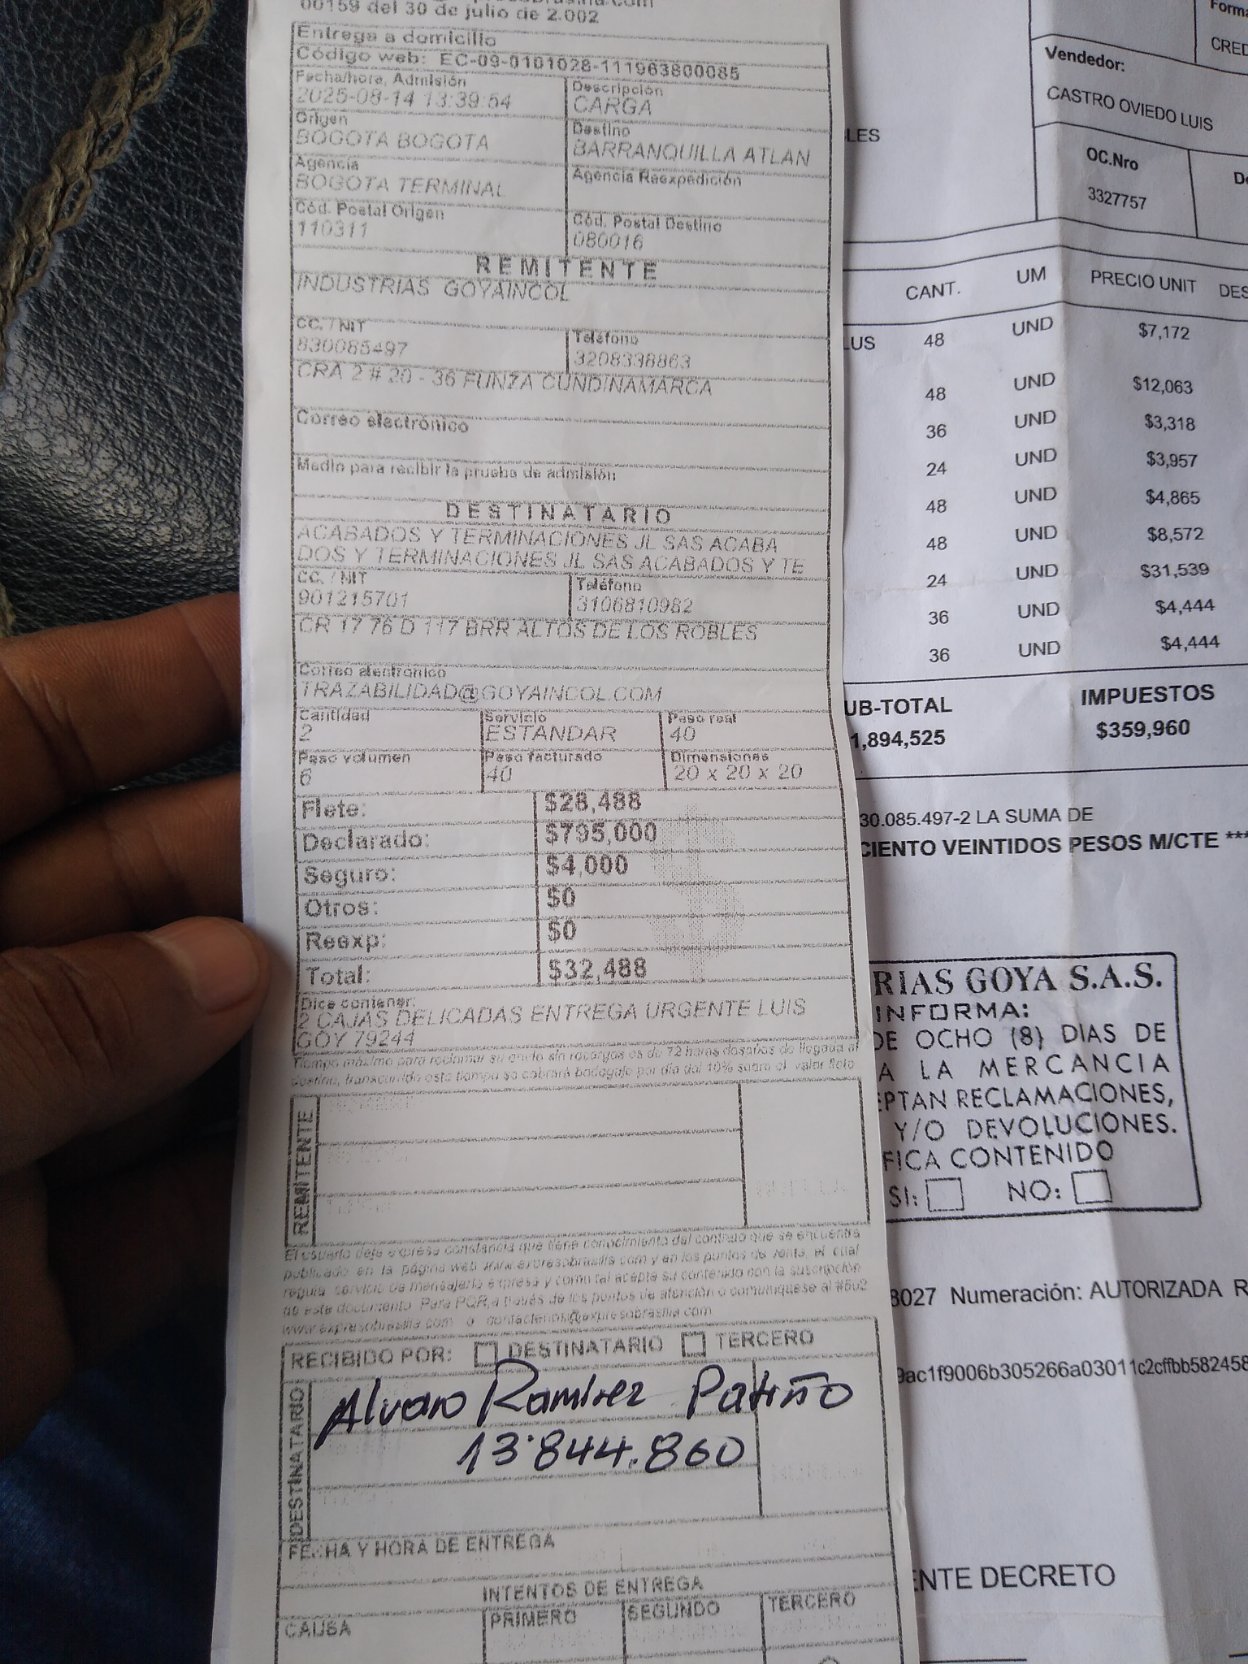 00159 del 30 de julio de 2.002
Entrega a domicilio
Código web: EC-09-0101028-111963800085
Fecha/hora, Admisión
2025-08-14 13:39:54
Descripción
CARGA
Origen
BOGOTA BOGOTA
Destino
BARRANQUILLA ATLAN
Agencia
BOGOTA TERMINAL
Agencia Reexpedición
Cód. Postal Origen
110311
Cód. Postal Destino
080016
REMITENTE
INDUSTRIAS GOYAINCOL
CC. / NIT
830085497
Teléfono
3208338863
CRA 2 # 20 - 36 FUNZA CUNDINAMARCA
Correo electrónico
Medio para recibir la prueba de admisión
DESTINATARIO
ACABADOS Y TERMINACIONES JL SAS ACABA
DOS Y TERMINACIONES JL SAS ACABADOS Y TE
CC. / NIT
901215701
Teléfono
3106810982
CR 17 76 D 117 BRR ALTOS DE LOS ROBLES
Correo electrónico
TRAZABILIDAD@GOYAINCOL.COM
Cantidad
2
Servicio
ESTANDAR
Peso real
40
Peso volumen
6
Peso facturado
40
Dimensiones
20 x 20 x 20
Flete: $28,488
Declarado: $795,000
Seguro: $4,000
Otros: $0
Reexp: $0
Total: $32,488
Dice contener:
2 CAJAS DELICADAS ENTREGA URGENTE LUIS
GOY 79244
Tiempo máximo para reclamar su envío sin recargos es de 72 horas después de llegada al
destino, transcurrido este tiempo se cobrará bodegaje por día del 10% sobre el valor flete
REMITENTE
El usuario deja expresa constancia que tiene conocimiento del contrato que se encuentra
publicado en la página web www.expresobrasilia.com y en los puntos de venta, el cual
regula servicio de mensajería expresa y como tal acepta su contenido con la suscripción
de este documento. Para PQR a través de los puntos de atención o comuníquese al #502
www.expresobrasilia.com o contactenos@expresobrasilia.com
RECIBIDO POR: DESTINATARIO TERCERO
DESTINATARIO
Alvaro Ramirez Patiño
13.844.860
FECHA Y HORA DE ENTREGA
INTENTOS DE ENTREGA
CAUSA PRIMERO SEGUNDO TERCERO
Forma
CRED
Vendedor:
CASTRO OVIEDO LUIS
LES
OC.Nro
3327757
CANT. UM PRECIO UNIT DES
LUS 48 UND $7,172
48 UND $12,063
36 UND $3,318
24 UND $3,957
48 UND $4,865
48 UND $8,572
24 UND $31,539
36 UND $4,444
36 UND $4,444
UB-TOTAL IMPUESTOS
1,894,525 $359,960
30.085.497-2 LA SUMA DE
CIENTO VEINTIDOS PESOS M/CTE ***
RIAS GOYA S.A.S.
INFORMA:
DE OCHO (8) DIAS DE
A LA MERCANCIA
EPTAN RECLAMACIONES,
Y/O DEVOLUCIONES.
FICA CONTENIDO
SI: NO:
8027 Numeración: AUTORIZADA R
9ac1f9006b305266a03011c2cffbb582458
NTE DECRETO